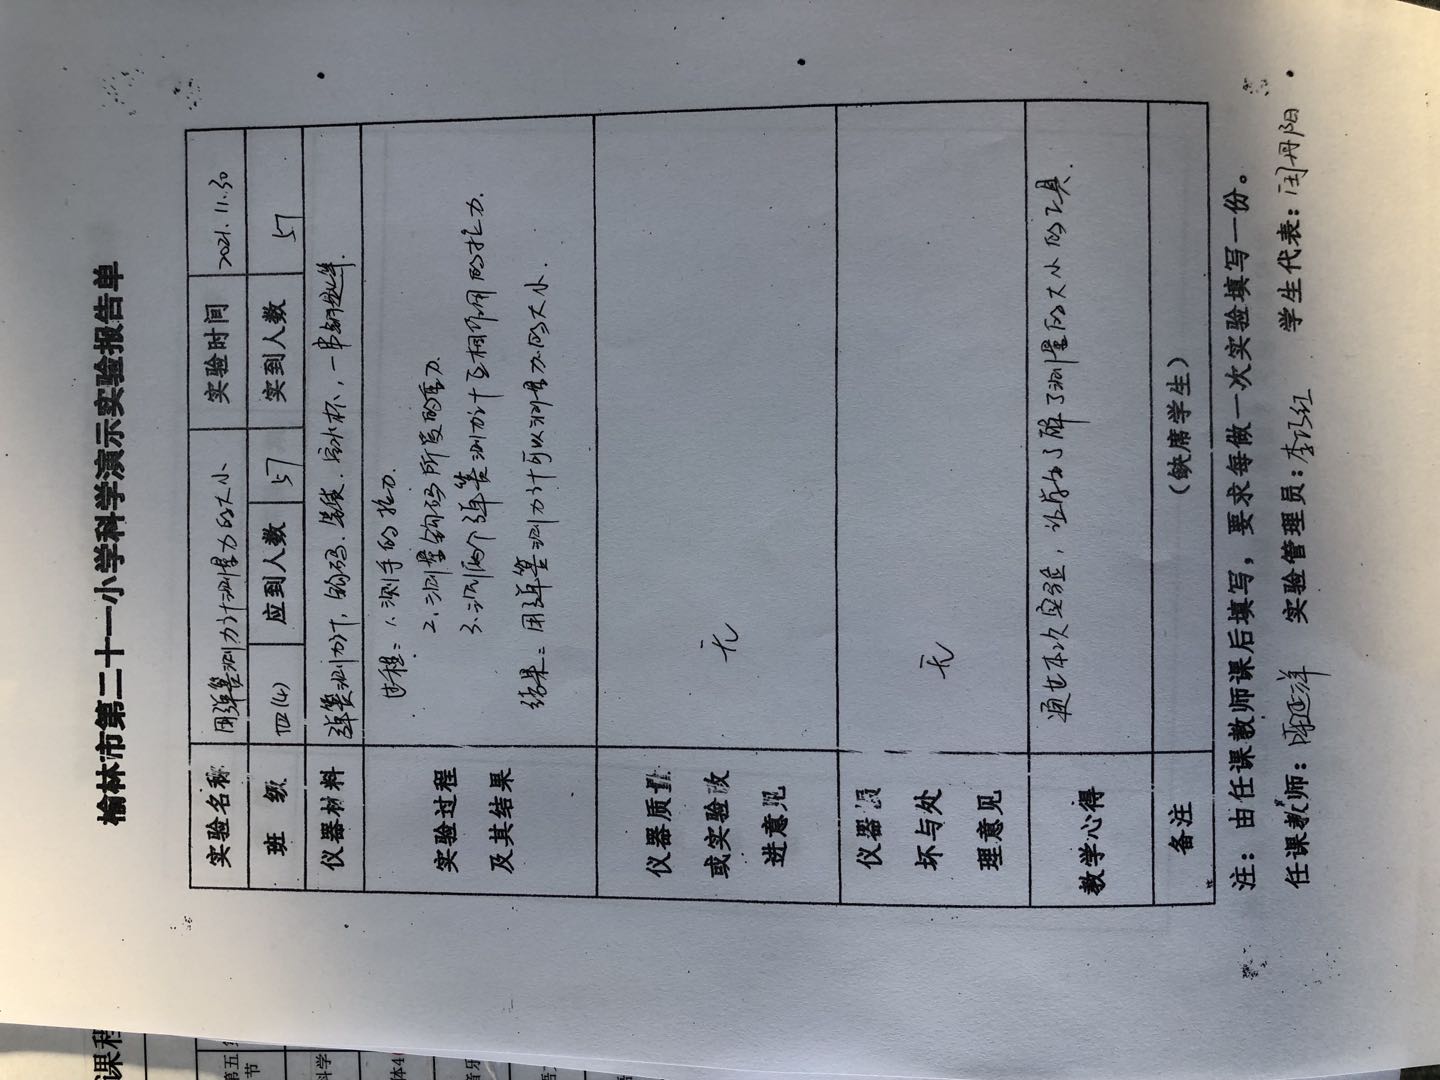 榆林市第二十一小学科学演示实验报告单
实验名称 用弹簧测力计测量力的大小 实验时间 2021.11.30
班 级 四(4) 应到人数 57 实到人数 57
仪器材料 弹簧测力计,钩码、笔袋、空水杯、一串钥匙等.
实验过程
及其结果
过程:1.测手的拉力.
2.测量钩码所受的重力
3.识别两个弹簧测力计互相作用的拉力.
结果:用弹簧测力计可以测量力的大小.
仪器质量
或实验改
进意见
无
仪器损
坏与处
理意见
无
教学心得 通过本次实验,让学生了解了测量力的大小的工具.
备注 (缺席学生)
注:由任课教师课后填写,要求每做一次实验填写一份。
任课教师: 实验管理员: 学生代表:闫丹阳
课程
第五
节
科学
体4
音乐